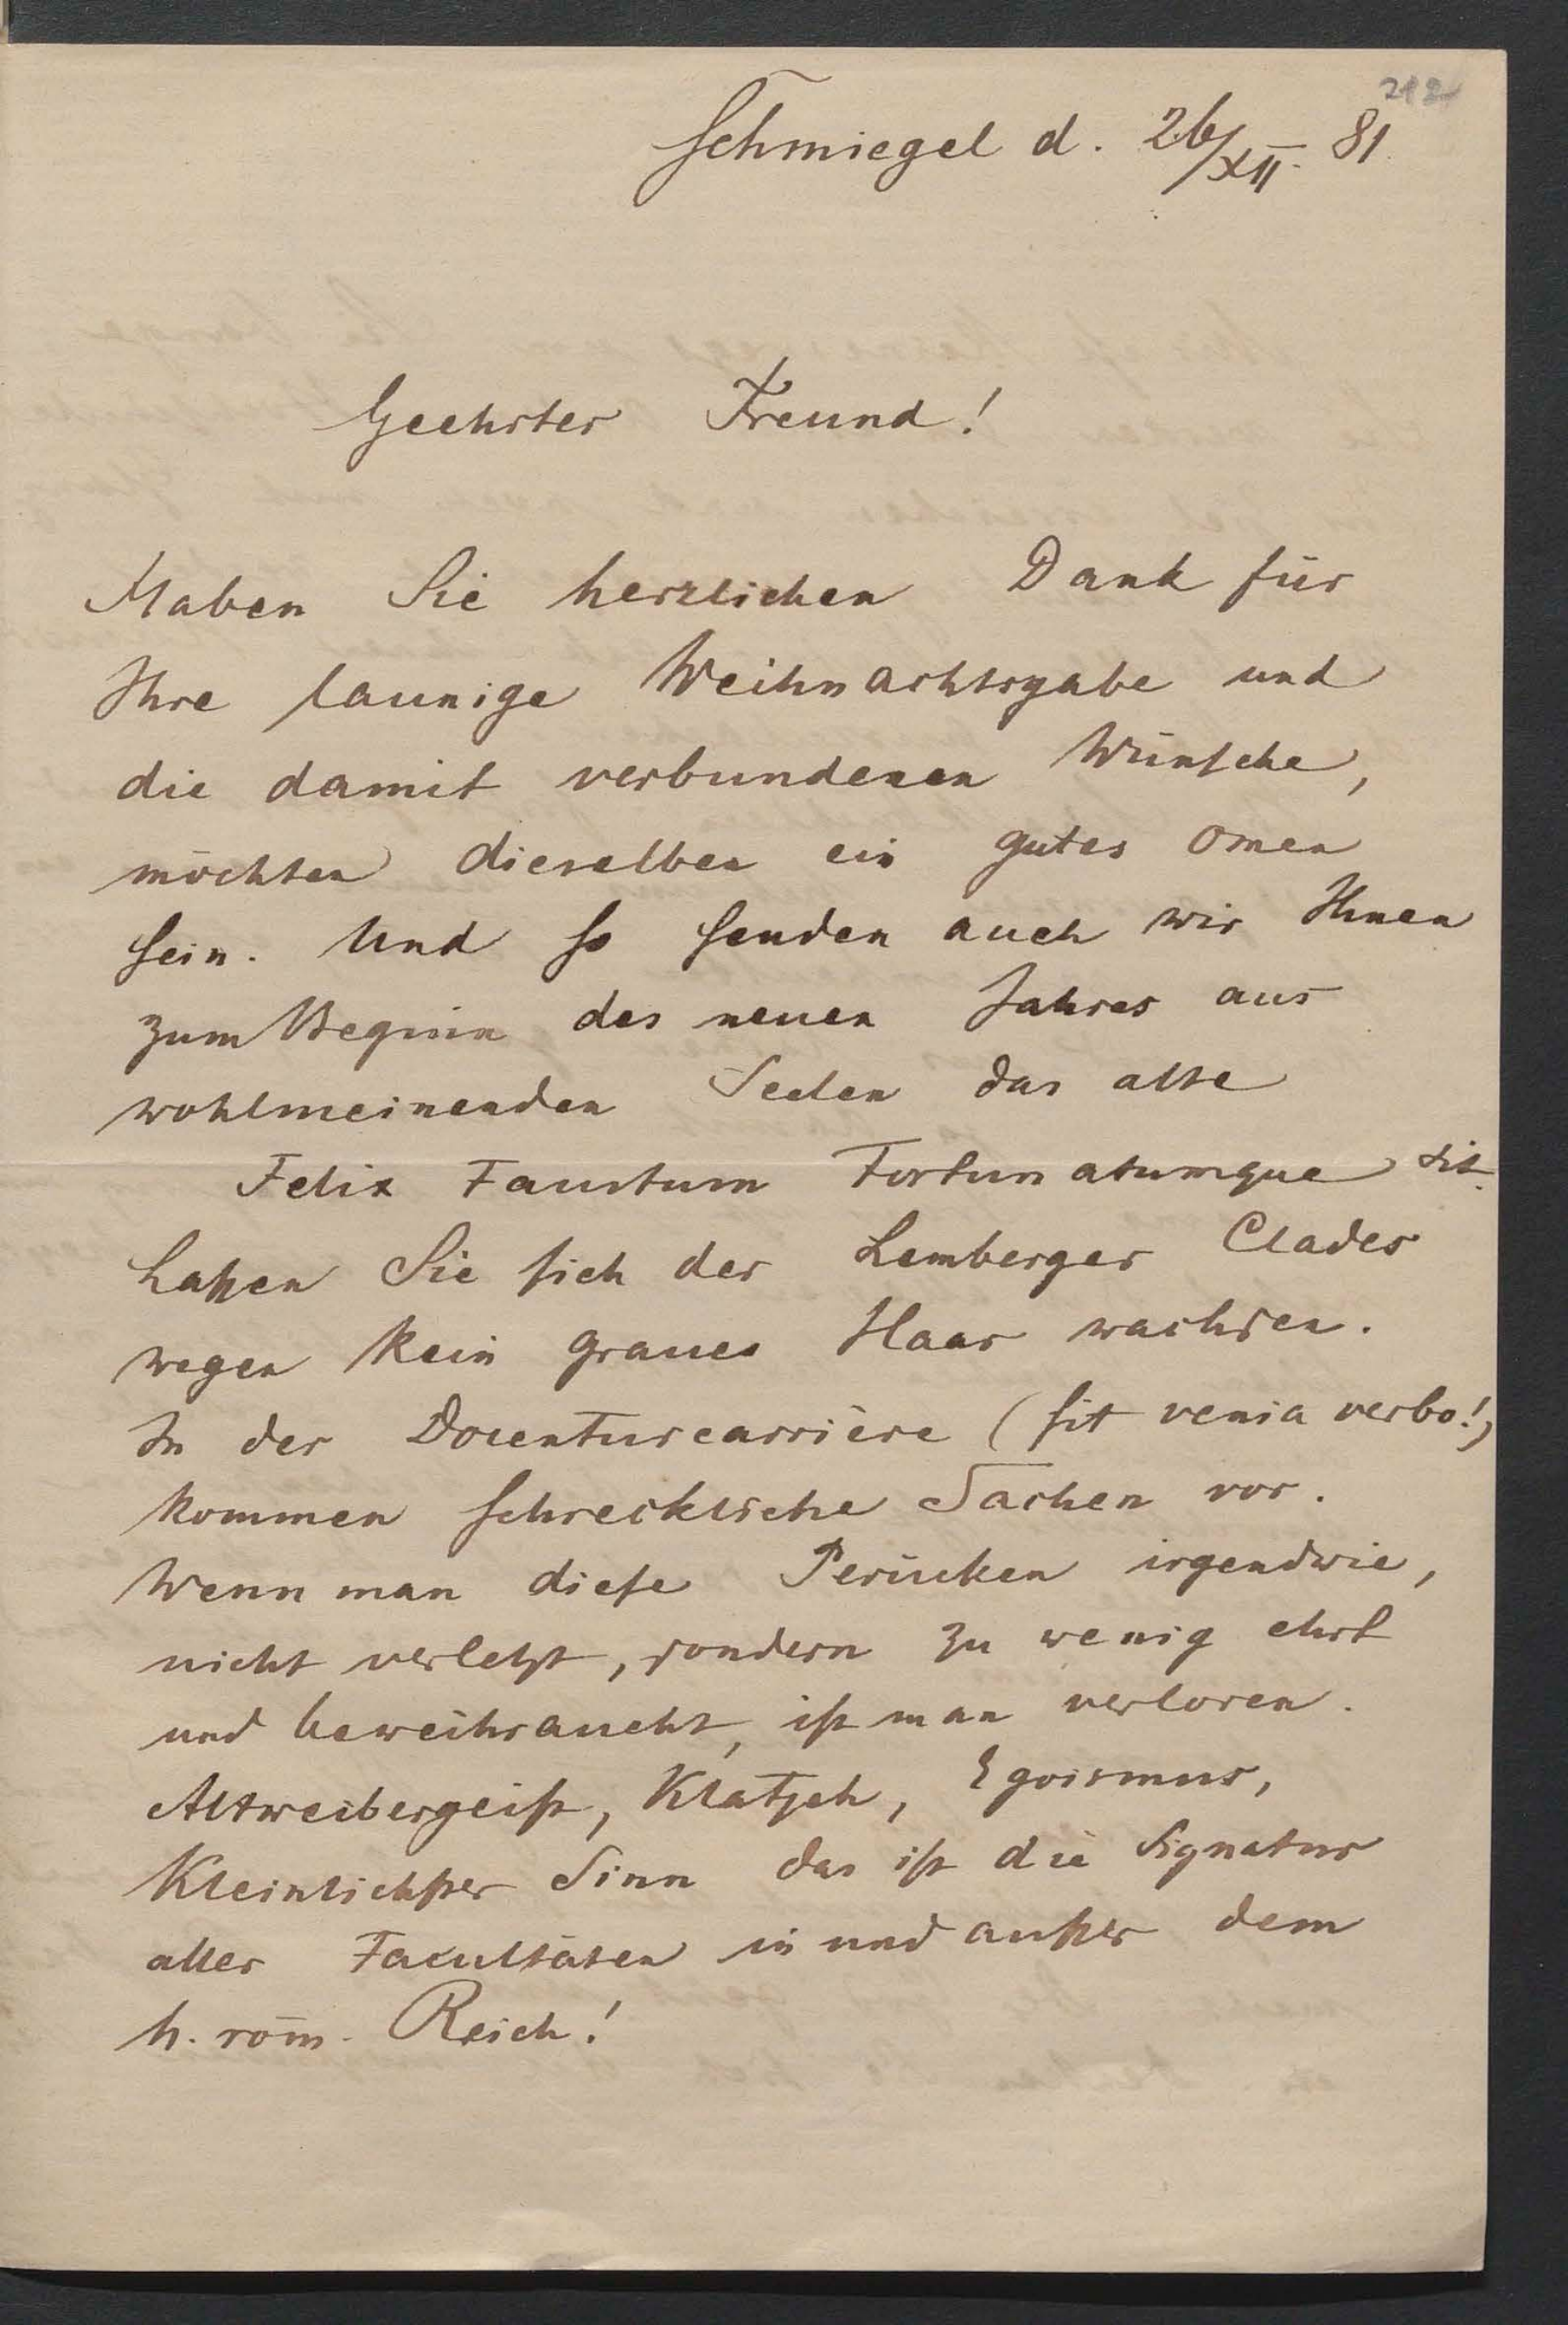 212
Schmiegel d. 26/XII. 81.
Geehrter Freund!
Haben Sie herzlichen Dank für
Ihre launige Weihnachtsgabe und
die damit verbundenen Wünsche,
möchten dieselben ein gutes Omen
sein. Und so senden auch wir Ihnen
zum Beginn des neuen Jahres aus
wohlmeinenden Seelen das alte
Felix Faustum Fortunatumque sit.
Laßen Sie sich der Lemberger Clades
wegen kein graues Haar wachsen.
In der Docenturcarrière (sit venia verbo!)
kommen schreckliche Sachen vor.
Wenn man diese Perücken irgendwie,
nicht verletzt, sondern zu wenig ehrt
und beweihraucht, ist man verloren.
Altweibergeist, Klatsch, Egoismus,
Kleinlichster Sinn das ist die Signatur
aller Facultäten in und außer dem
h. röm. Reich!